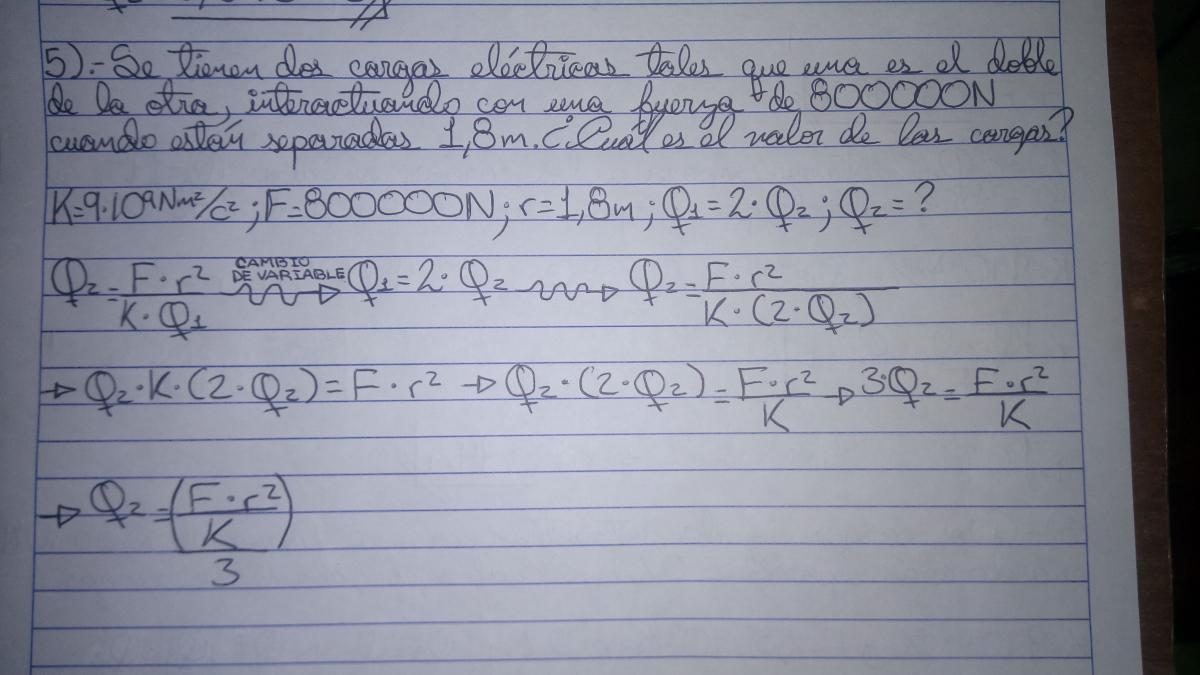 5).- Se tienen dos cargas eléctricas tales que una es el doble
de la otra, interactuando con una fuerza de 800000N
cuando están separadas 1,8m. ¿Cuál es el valor de las cargas?
K=9·10⁹Nm²/c² ; F=800000N ; r=1,8m ; Q₁=2·Q₂ ; Q₂=?
Q₂=F·r²/K·Q₁ CAMBIO DE VARIABLE → Q₁=2·Q₂ → Q₂=F·r²/K·(2·Q₂)
→ Q₂·K·(2·Q₂)=F·r² → Q₂·(2·Q₂)=F·r²/K → 3·Q₂=F·r²/K
→ Q₂=(F·r²/K)/3